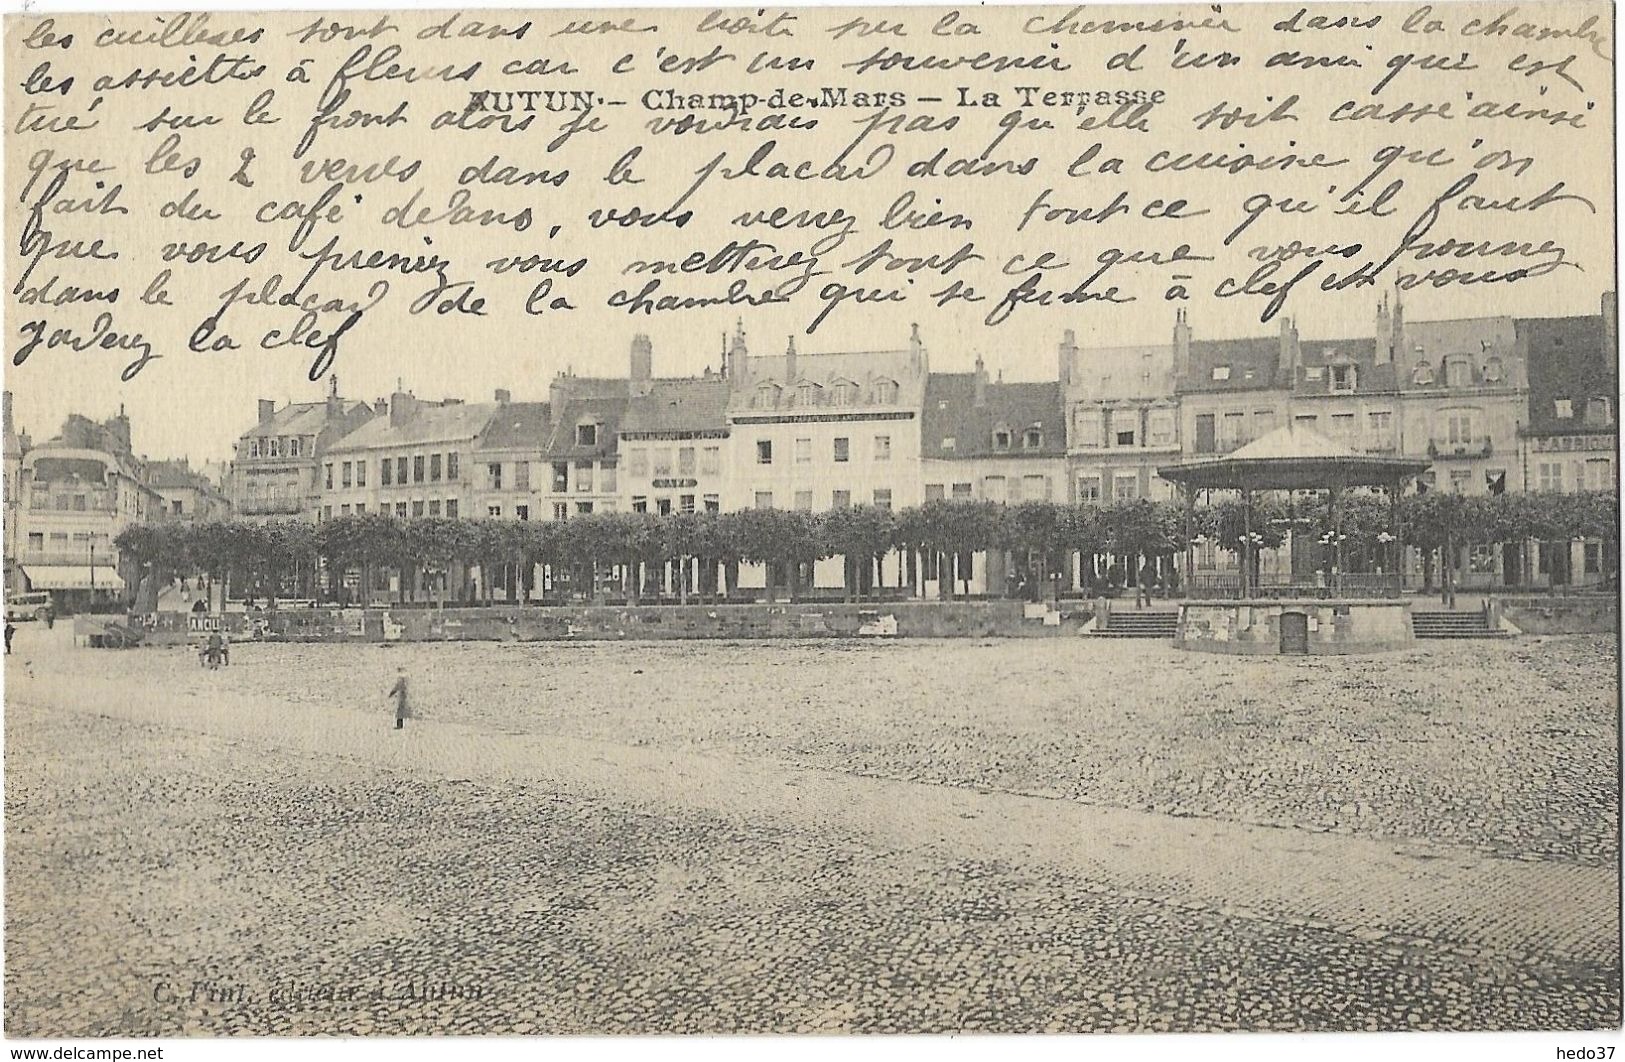 les cuilleres sont dans une boite sur la cheminée dans la chambre
les assiettes à fleurs car c'est un souvenir d'un ami qui est
AUTUN - Champ-de-Mars - La Terrasse
tué sur le front alors je voudrais pas qu'elle soit cassé ainsi
que les 2 verres dans le placad dans la cuisine qu'on
fait du café dedans, vous verrez bien tout ce qu'il faut
que vous preniez vous metterez tout ce que vous pourrez
dans le placad de la chambre qui se ferme à clef et vous
garderez la clef
RESTAURANT
CAFÉ
FABRIQUE
CAFÉ FRANÇAIS
C. Pint, éditeur à Autun
www.delcampe.net
hedo37